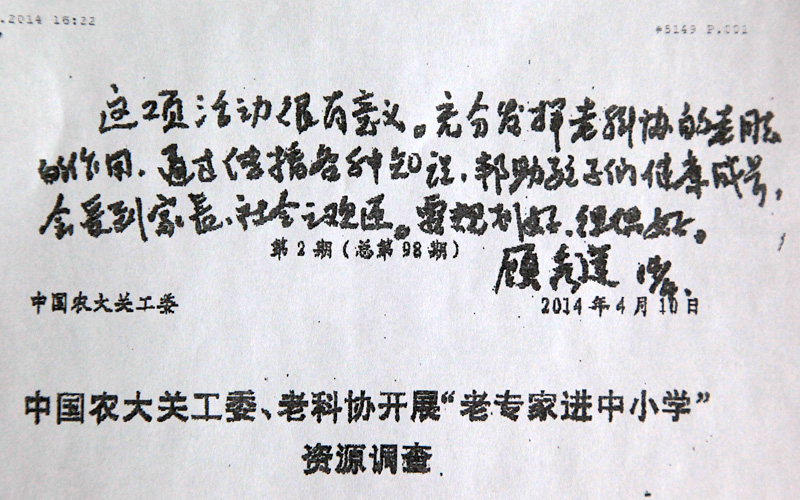 .2014 16:22
#5149 P.001
这项活动很有意义。充分发挥老科协的老同志
的作用，通过传播各种知识，帮助孩子们健康成长，
会受到家长、社会的欢迎。要规划好、组织好。
第2期（总第98期）
顾秀莲
中国农大关工委
2014年4月10日
中国农大关工委、老科协开展“老专家进中小学”
资源调查